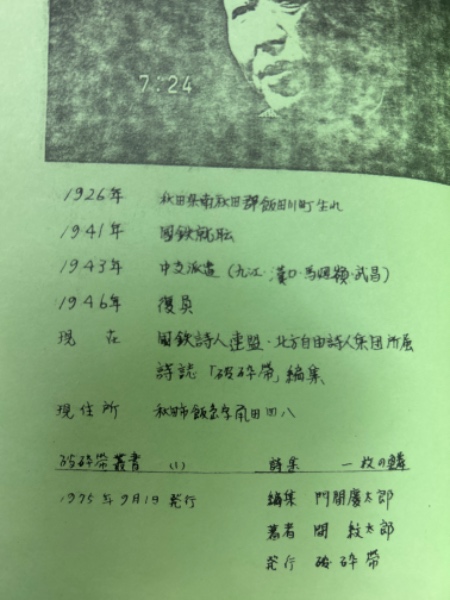 7:24
1926年 秋田県南秋田郡飯田川町生れ
1941年 國鉄就职
1943年 中支派遣(九江・漢口・馬廻嶺・武昌)
1946年 復員
現在 國鉄詩人連盟・北方自由詩人集団所属
詩誌「破砕帯」編集
現住所 秋田市飯島字 田四八
破砕帯叢書 (1) 詩集 一枚の鱗
1975年 月1日 発行 編集 門間慶太郎
著者 間 紋太郎
発行 破砕帯